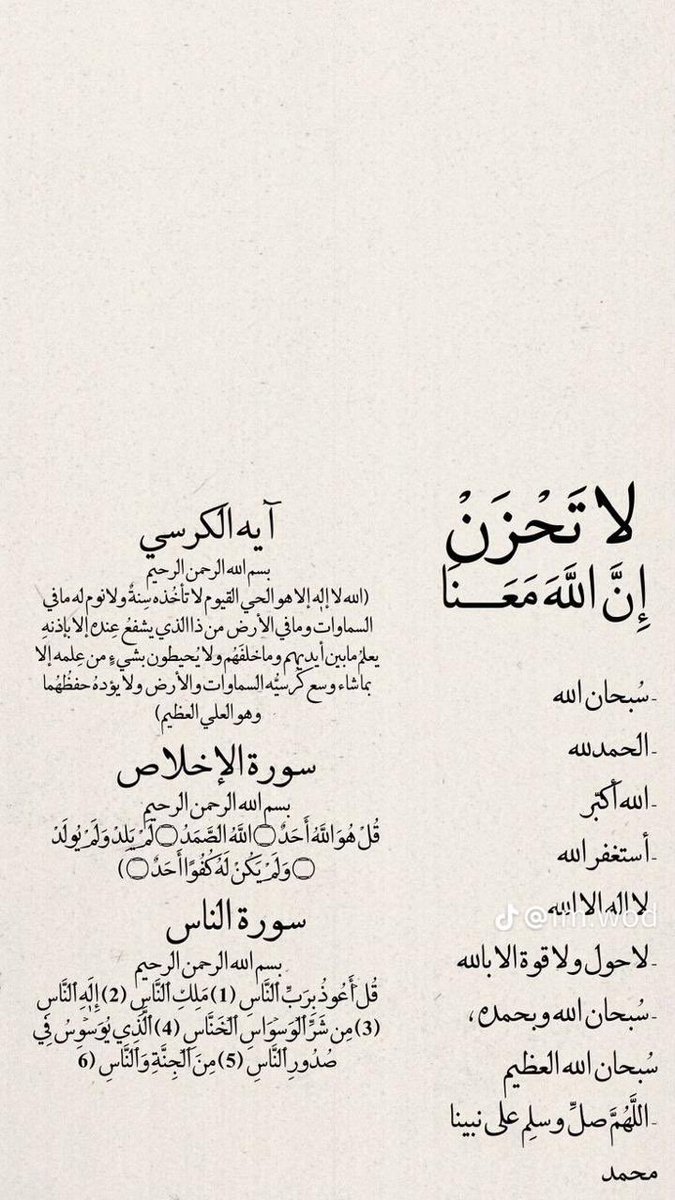 لا تَحْزَنْ
إِنَّ اللَّهَ مَعَـــنَا
-سُبحان الله
-الحمدلله
-الله أكبر
-أستغفر الله
لا اله الا الله
-لا حول ولا قوة الا بالله
-سُبحان الله وبحمده،
سُبحان الله العظيم
-اللَّهُمَّ صلِّ وسلِم على نبينا
محمد
آيه الكرسي
بسم الله الرحمن الرحيم
(الله لا إله إلا هو الحي القيوم لا تأخُذه سِنةٌ ولا نوم له مافي
السماوات ومافي الأرض من ذا الذي يشفعُ عِنده إلا بإذنهِ
يعلمُ مابين أيديهم وماخلفَهُم ولا يُحيطون بشيءٍ من عِلمه إلا
بماشاء وسع كُرسيُّه السماوات والأرض ولا يؤدهُ حفظُهُما
وهو العلي العظيم)
سورة الإخلاص
بسم الله الرحمن الرحيم
قُلْ هُوَ اللَّهُ أَحَدٌ۝اللَّهُ الصَّمَدُ۝لَمْ يَلِدْ وَلَمْ يُولَدْ
۝وَلَمْ يَكُنْ لَهُ كُفُوًا أَحَدٌ۝)
سورة الناس
بسم الله الرحمن الرحيم
قُلْ أَعُوذُ بِرَبِّ النَّاسِ (1) مَلِكِ النَّاسِ (2) إِلَهِ النَّاسِ
(3) مِن شَرِّ الْوَسْوَاسِ الْخَنَّاسِ (4) الَّذِي يُوَسْوِسُ فِي
صُدُورِ النَّاسِ (5) مِنَ الْجِنَّةِ وَالنَّاسِ (6